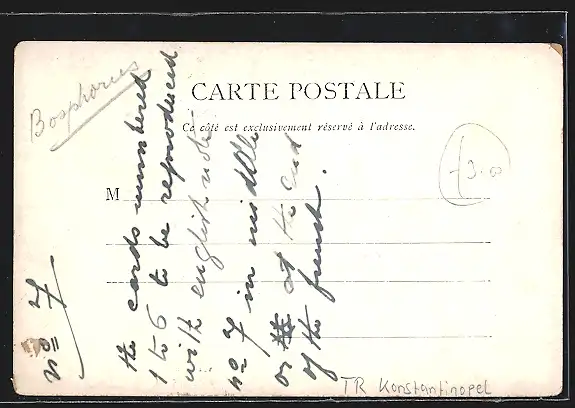 Bosphorus
CARTE POSTALE
Ce côté est exclusivement réservé à l'adresse.
M
3.00
the cards numbered
1 to 6 to be reproduced
with english note
no 7 in middle
or at the end
of the french.
no 7
TR Konstantinopel